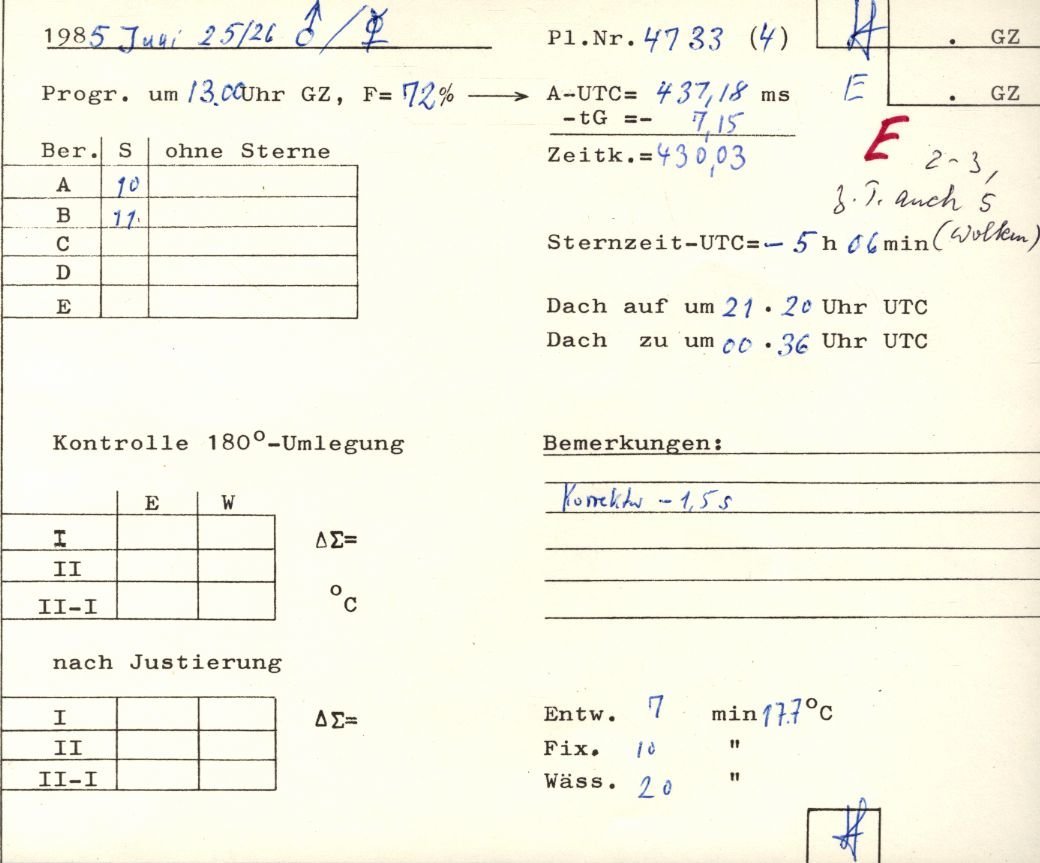 1985 Juni 25/26 ♂/☿ Pl.Nr. 4733 (4) . GZ
Progr. um 13.00 Uhr GZ, F= 72% → A-UTC= 437,18 ms E . GZ
-tG =- 7,15
Zeitk.= 430,03 E 2-3,
z.T. auch 5
(Wolken)
Ber. S ohne Sterne
A 10
B 11
C
D
E
Sternzeit-UTC= - 5 h 06 min
Dach auf um 21 . 20 Uhr UTC
Dach zu um 00 . 36 Uhr UTC
Kontrolle 180°-Umlegung
E W
I ΔΣ=
II
II-I °C
Bemerkungen:
Korrektur - 1,5 s
nach Justierung
I ΔΣ=
II
II-I
Entw. 7 min 17.7°C
Fix. 10 "
Wäss. 20 "